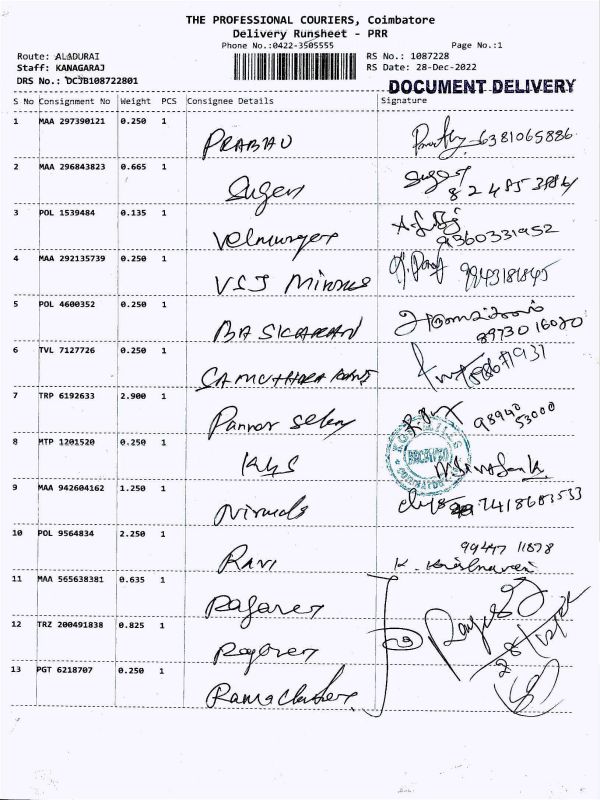 THE PROFESSIONAL COURIERS, Coimbatore
Delivery Runsheet - PRR
Phone No.:0422-3505555
Page No.:1
Route: ALADURAI
RS No.: 1087228
Staff: KANAGARAJ
RS Date: 28-Dec-2022
DRS No.: DCJB108722801
DOCUMENT DELIVERY
S No Consignment No Weight PCS Consignee Details Signature
1 MAA 297390121 0.250 1 PRABAU 6381065886
2 MAA 296843823 0.665 1 Sugen
3 POL 1539484 0.135 1 Velmurugan 9360331952
4 MAA 292135739 0.250 1 VSJ 9943181845
5 POL 4600352 0.250 1 BASKARAN 8973016020
6 TVL 7127726 0.250 1
7 TRP 6192633 2.900 1 98940 53000
8 MTP 1201520 0.250 1 KGS
9 MAA 942604162 1.250 1 Nirmala 7418683533
10 POL 9564834 2.250 1 RAVI 99447 11878
K. Krishnaveni
11 MAA 565638381 0.635 1
12 TRZ 200491838 0.825 1
13 PGT 6218707 0.250 1